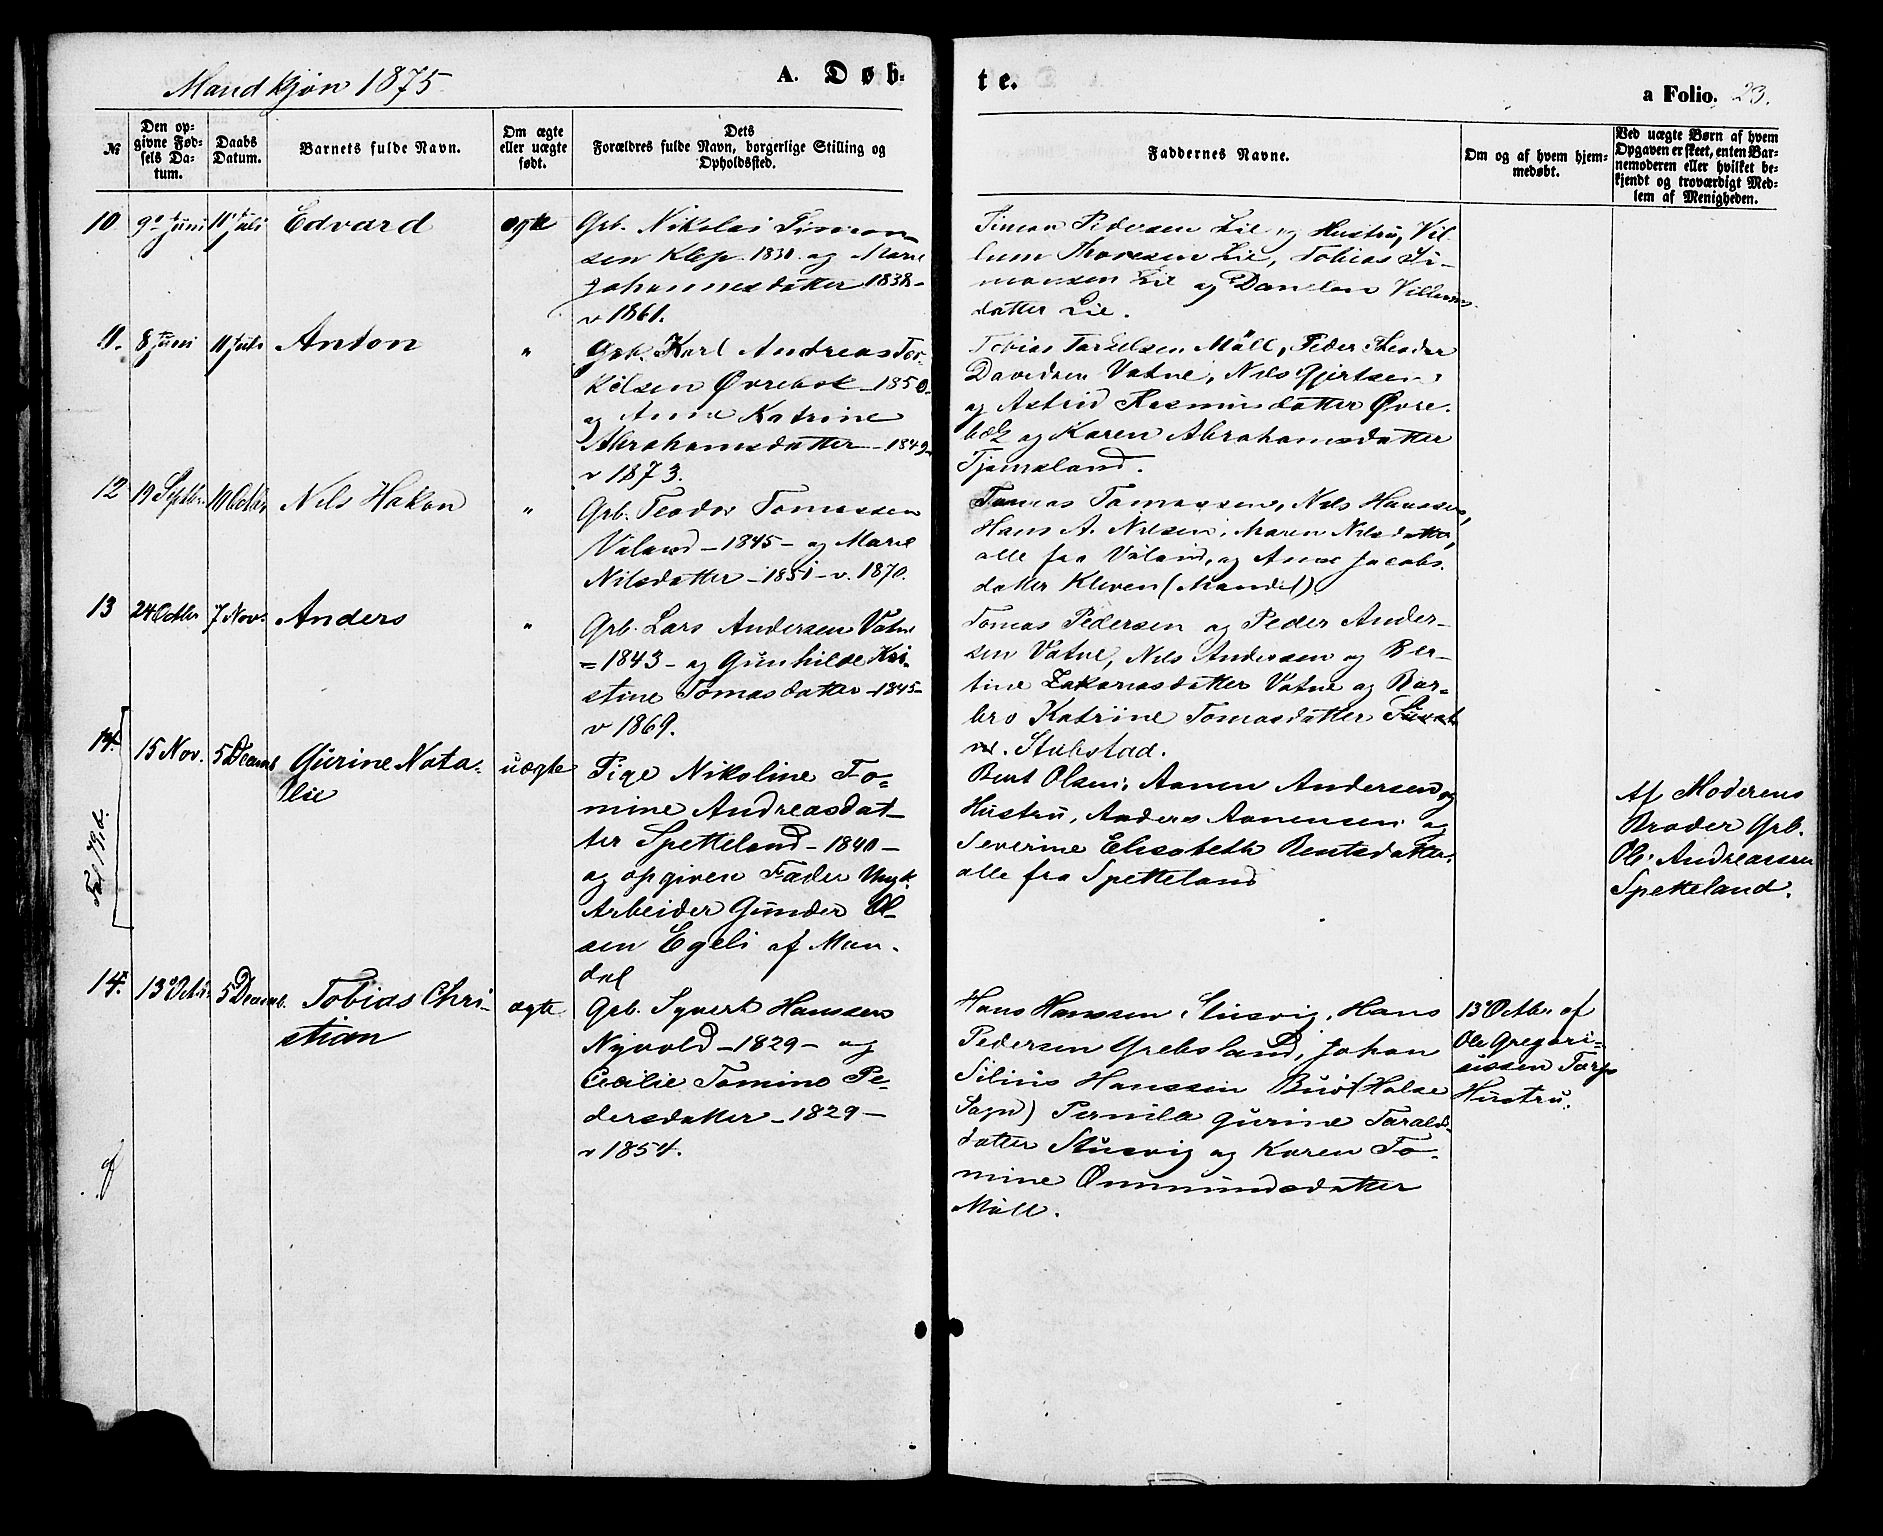 Mandkjøn 1875.
A. Døb-
te.
a Folio. 23.
№
Den op-
givne Fød-
sels Da-
tum.
Daabs
Datum.
Barnets fulde Navn.
Om ægte
eller uægte
født.
Dets
Forældres fulde Navn, borgerlige Stilling og
Opholdssted.
Faddernes Navne.
Om og af hvem hjem-
medøbt.
Ved uægte Børn af hvem
Opgaven er skeet, enten Bar-
nemoderen eller hvilket be-
kjendt og troværdigt Med-
lem af Menigheden.
10
9 Juni
11 Juli
Edvard
ægte
Grb. Nikolai Simon-
sen Klep. 1830. og Marie
Johannesdatter 1838-
v 1861.
Simon Pedersen Lie og Hustru, Vil-
lum Tharesen Lie, Tobias Si-
monsen Lie og Danlen Villums-
datter Lie.
11.
8 Juni
11 Juli
Anton
"
Gbk. Karl Andreas Tor-
kelsen Øvrebøk - 1850-
og Anne Katrine
Abrahamsdatter - 1849-
v 1873.
Tobias Tarielsen Møll, Peder Theodor
Davidsen Vatne, Nils Gjertsen
og Astrid Rasmusdatter Øvre-
bæk og Karen Abrahamsdatter
Tjomsland.
12
19 Septbr.
10 Octbr.
Nils Hakon
"
Grb. Teodor Tomassen
Våland - 1845 - og Marie
Nilsdatter - 1851 - v. 1870.
Tomas Tomassen, Nils Hanssen,
Hans A. Nilsen, Maren Nilsdatter,
alle fra Våland, og Anne Jacobs-
datter Kleven (Mandal)
13
24 Octbr
7 Nov.
Anders
"
Grb. Lars Andersen Vatne
= 1843 - og Gunhilde Kri-
stine Tomasdatter - 1845 -
v 1869.
Tomas Pedersen og Peder Ander-
sen Vatne, Nils Andersen og Ber-
tine Zakariasdatter Vatne og Bar-
bro Katrine Tomasdatter
Stubstad.
14.
15 Nov.
5 Decemb
Gurine Nata-
lie
uægte
Pige Nikoline To-
mine Andreasdat-
ter Spetteland - 1840 -
og opgiven Fader Ungk.
Arbeider Gunder Ol-
sen Egeli af Man-
dal
Bent Olsen, Aanen Andersen og
Hustru, Anders Aanensen og
Severine Elisabeth Bentsdatter,
alle fra Spetteland
Af Moderens
Broder Grb.
Ole Andreassen
Spetteland.
14.
13 Octbr
5 Decemb.
Tobias Chri-
stian
ægte
Grb. Syvert Hanssen
Nyvold - 1829 - og
Cecilie Tomine Pe-
dersdatter - 1829 -
v 1854.
Hans Hanssen Stusvig, Hans
Pedersen Grebsland, Johan
Silius Hanssen Buø (Halse
Sogn) Pernila Gurine Tarals-
datter Stusvig og Karen To-
mine Ommundsdatter
Møll.
13 Octbr. af
Ole Gregori-
ussen Tarps
Hustru.